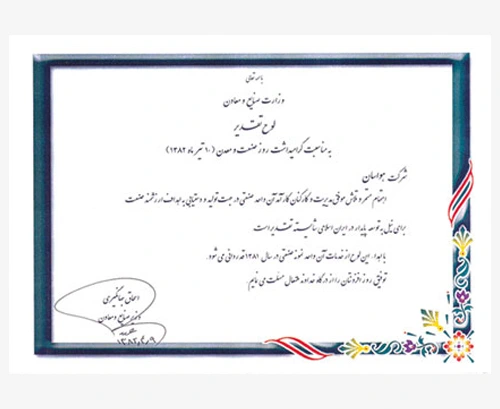 باسمه تعالی
وزارت صنایع و معادن
لوح تقدیر
به مناسبت گرامیداشت روز صنعت و معدن (۱۰ تیر ماه ۱۳۸۲)
شرکت هواسان
اهتمام مستمر و تلاش موفق مدیریت و کارکنان کارآمد آن واحد صنعتی در جهت تولید و دستیابی به اهداف ارزشمند صنعت
برای نیل به توسعه پایدار در ایران اسلامی شایسته تقدیر است
با اهداء این لوح از خدمات آن واحد نمونه صنعتی در سال ۱۳۸۱ قدردانی می شود.
توفیق روز افزونتان را از درگاه خداوند متعال مسئلت می نمایم.
اسحاق جهانگیری
وزیر صنایع و معادن